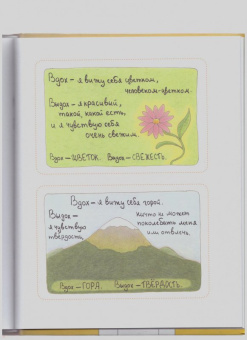 Вдох – я вижу себя цветком,
человеком-цветком.
Выдох – я красивый,
такой, какой есть,
и я чувствую себя
очень свежим.
Вдох – ЦВЕТОК. Выдох – СВЕЖЕСТЬ.
Вдох – я вижу себя горой.
Выдох –
я чувствую
твердость,
ничто не может
поколебать меня
или отвлечь.
Вдох – ГОРА. Выдох – ТВЕРДОСТЬ.